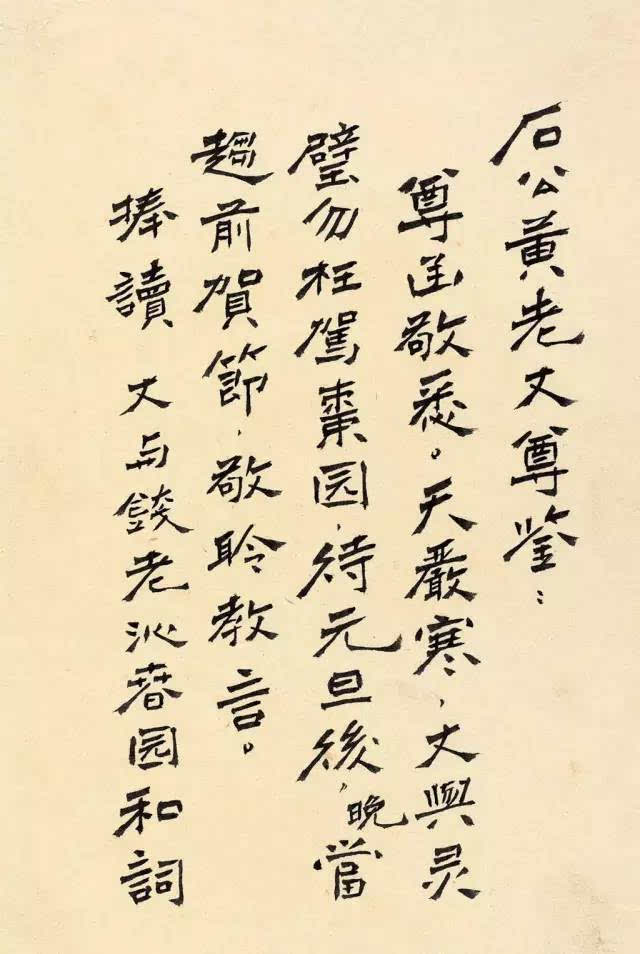 石公黄老丈尊鉴：
尊函敬悉。天嚴寒，丈與灵
璧勿枉駕棗园，待元旦後，晚當
趨前賀節，敬聆教言。
捧讀 丈与錢老沁春园和詞